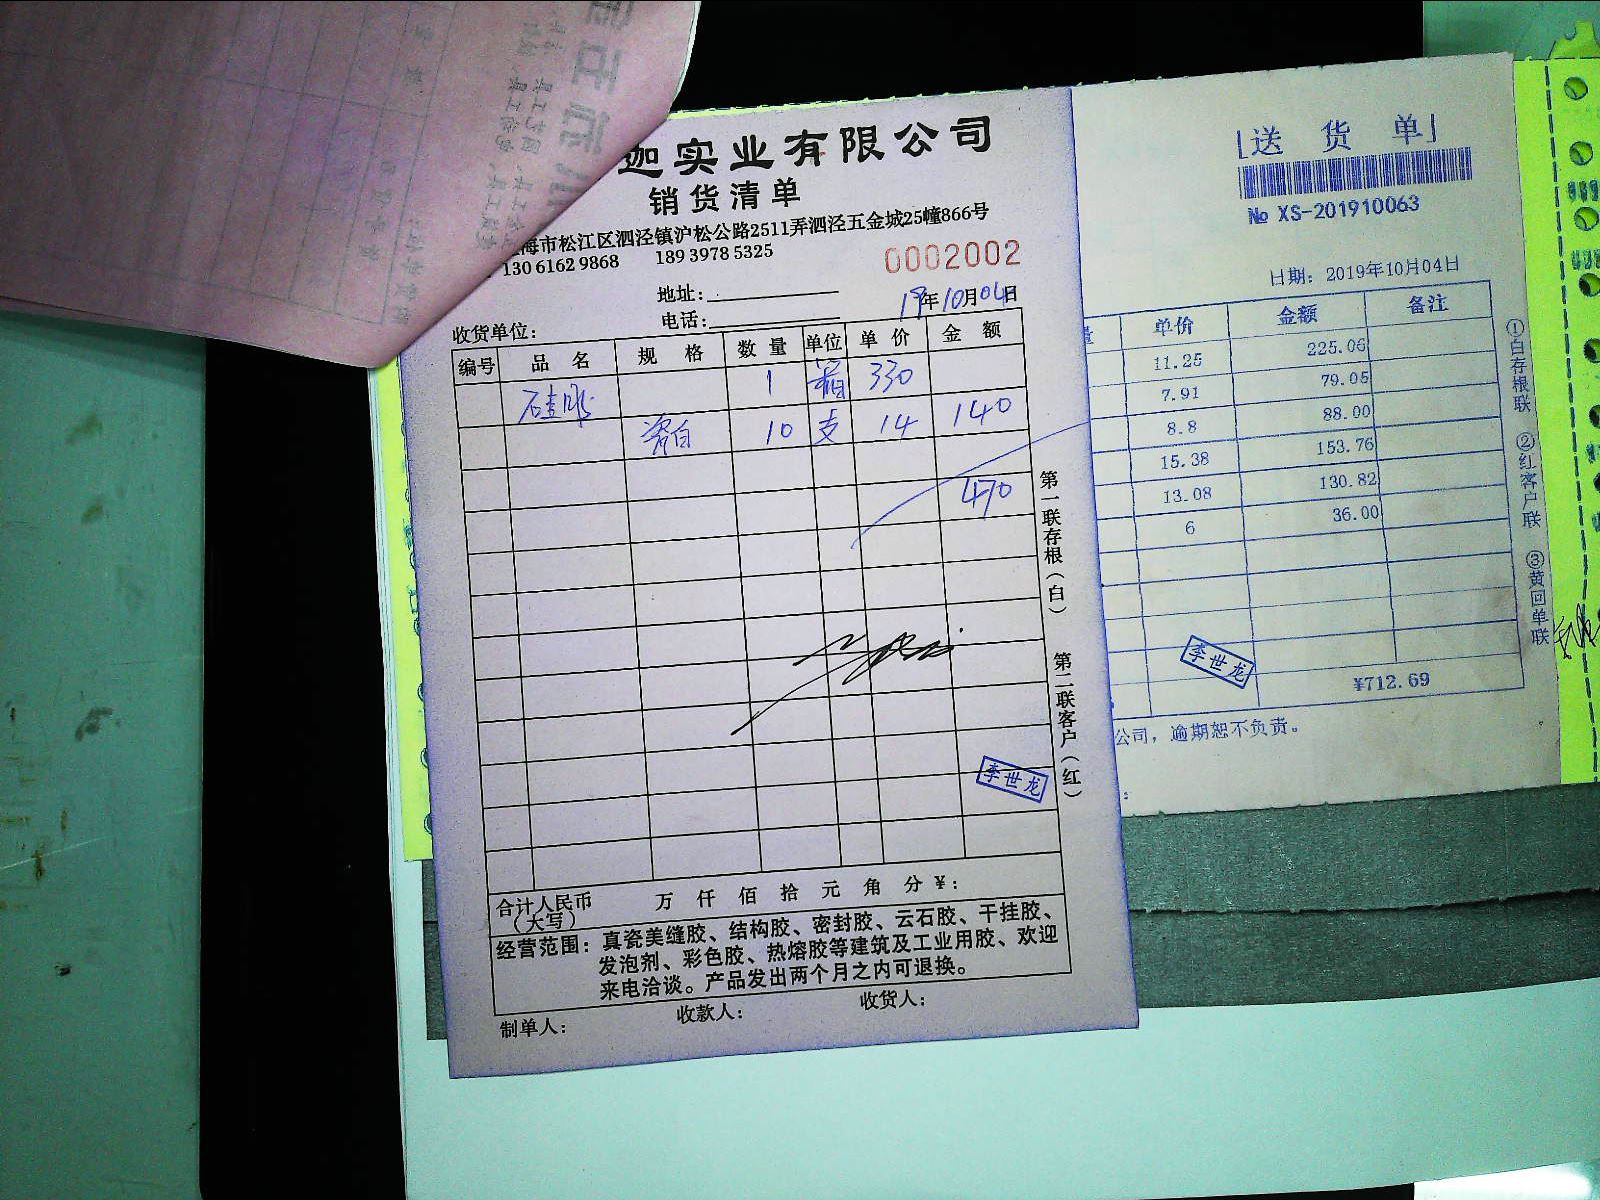 迦实业有限公司
销货清单
海市松江区泗泾镇沪松公路2511弄泗泾五金城25幢866号
130 6162 9868 189 3978 5325
0002002
地址:
19年10月04日
收货单位:
电话:
编号 品名 规格 数量 单位 单价 金额
硅胶 1 箱 330
瓷白 10 支 14 140
470
李世龙
合计人民币(大写) 万 仟 佰 拾 元 角 分 ¥:
经营范围: 真瓷美缝胶、结构胶、密封胶、云石胶、干挂胶、
发泡剂、彩色胶、热熔胶等建筑及工业用胶、欢迎
来电洽谈。产品发出两个月之内可退换。
制单人: 收款人: 收货人:
第一联存根(白)
第二联客户(红)
送货单
No XS-201910063
日期: 2019年10月04日
量 单价 金额 备注
11.25 225.06
7.91 79.05
8.8 88.00
15.38 153.76
13.08 130.82
6 36.00
李世龙
¥712.69
公司,逾期恕不负责。
①白存根联 ②红客户联 ③黄回单联